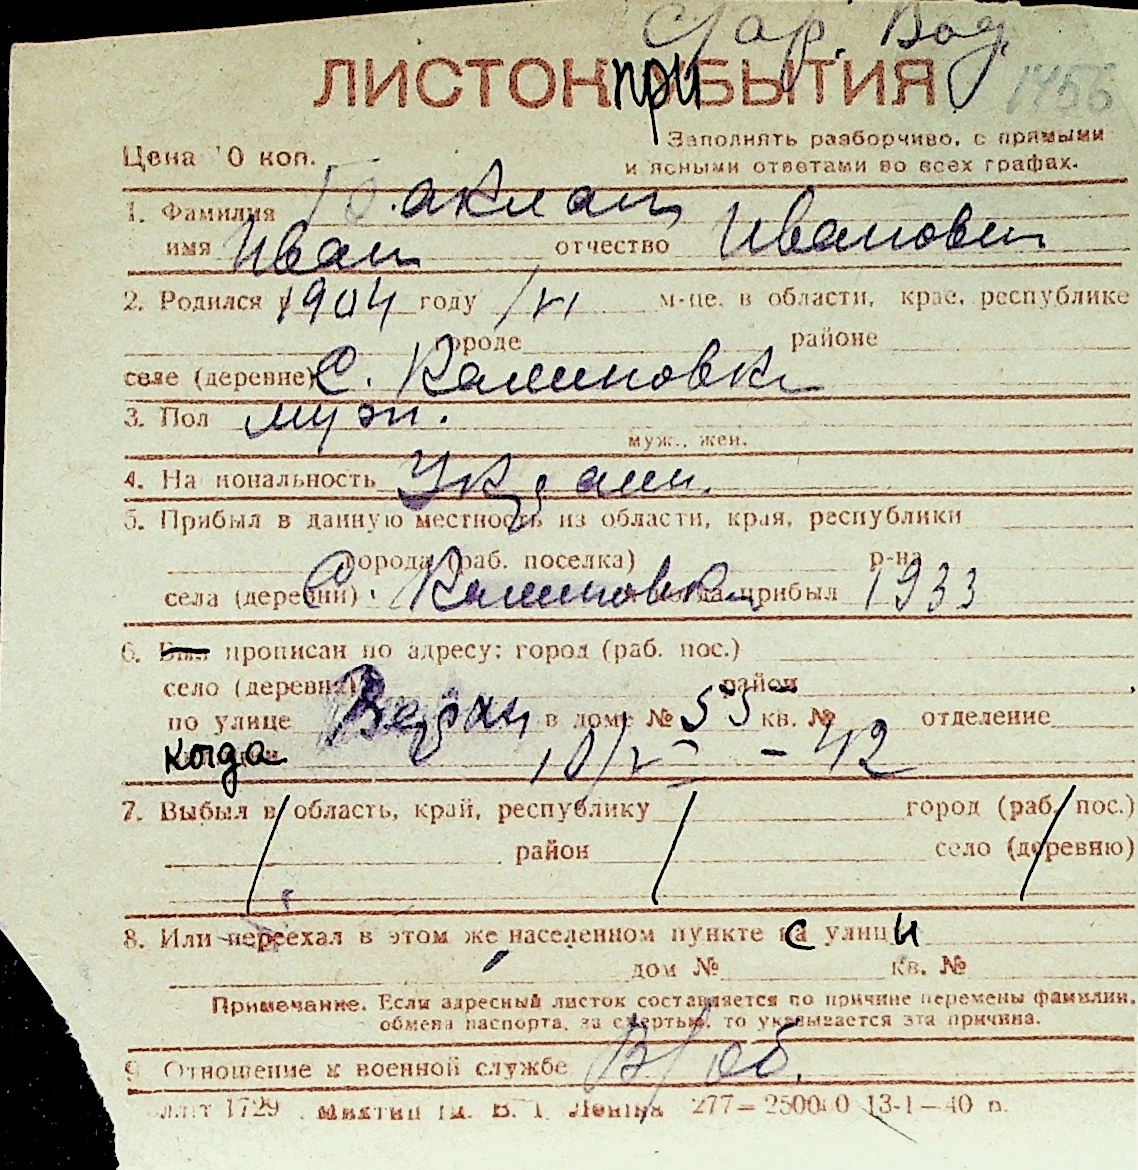 Стар. Вод.
ЛИСТОК ПРИБЫТИЯ 1456
Цена 10 коп.
Заполнять разборчиво, с прямыми
и ясными ответами во всех графах.
1. Фамилия Баклан
имя Иван отчество Иванович
2. Родился в 1904 году /VI м-це, в области, крае, республике
городе районе
селе (деревне) С. Калиновка
3. Пол муж.
муж., жен.
4. Национальность Украин.
5. Прибыл в данную местность из области, края, республики
города (раб. поселка) р-на
села (деревни) С. Калиновка когда прибыл 1933
6. Был прописан по адресу: город (раб. пос.)
село (деревня) район
по улице в доме № 55 кв. № отделение
когда 10/ - 42
7. Выбыл в область, край, республику город (раб. пос.)
район село (деревню)
8. Или переехал в этом же населенном пункте с улицы
дом № кв. №
Примечание. Если адресный листок составляется по причине перемены фамилии,
обмена паспорта, за смертью, то указывается эта причина.
9. Отношение к военной службе В/об.
1729 277—250000 13-1—40 п.